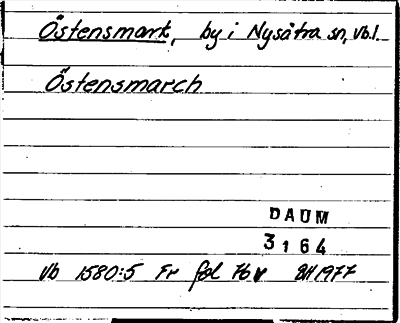 Östensmark, by i Nysätra sn, Vb.l.
Östensmarch
DAUM
3164
Vb 1580:5 Fr fol 76v BH 1977